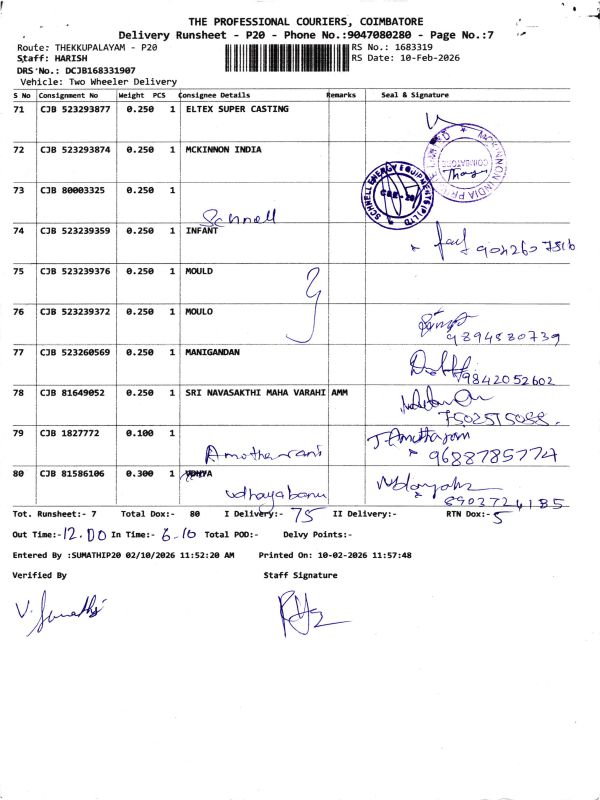 THE PROFESSIONAL COURIERS, COIMBATORE
Delivery Runsheet - P20 - Phone No.:9047080280 - Page No.:7
Route: THEKKUPALAYAM - P20
RS No.: 1683319
Staff: HARISH
RS Date: 10-Feb-2026
DRS No.: DCJB168331907
Vehicle: Two Wheeler Delivery
S No Consignment No Weight PCS Consignee Details Remarks Seal & Signature
71 CJB 523293877 0.250 1 ELTEX SUPER CASTING
72 CJB 523293874 0.250 1 MCKINNON INDIA
MCKINNON INDIA COIMBATORE
73 CJB 80003325 0.250 1
Schnell
SCHNELL ENERGY EQUIPMENTS (P) LTD
74 CJB 523239359 0.250 1 INFANT
9042607516
75 CJB 523239376 0.250 1 MOULD
76 CJB 523239372 0.250 1 MOULO
9894580739
77 CJB 523260569 0.250 1 MANIGANDAN
9842052602
78 CJB 81649052 0.250 1 SRI NAVASAKTHI MAHA VARAHI AMM
7502515088.
79 CJB 1827772 0.100 1
Amotharani
9688785774
80 CJB 81586106 0.300 1
udhayabanu
8903724185
Tot. Runsheet:- 7 Total Dox:- 80 I Delivery:- 75 II Delivery:- RTN Dox:- 5
Out Time:- 12.00 In Time:- 6-10 Total POD:- Delvy Points:-
Entered By :SUMATHIP20 02/10/2026 11:52:20 AM Printed On: 10-02-2026 11:57:48
Verified By Staff Signature
V. Sumathi